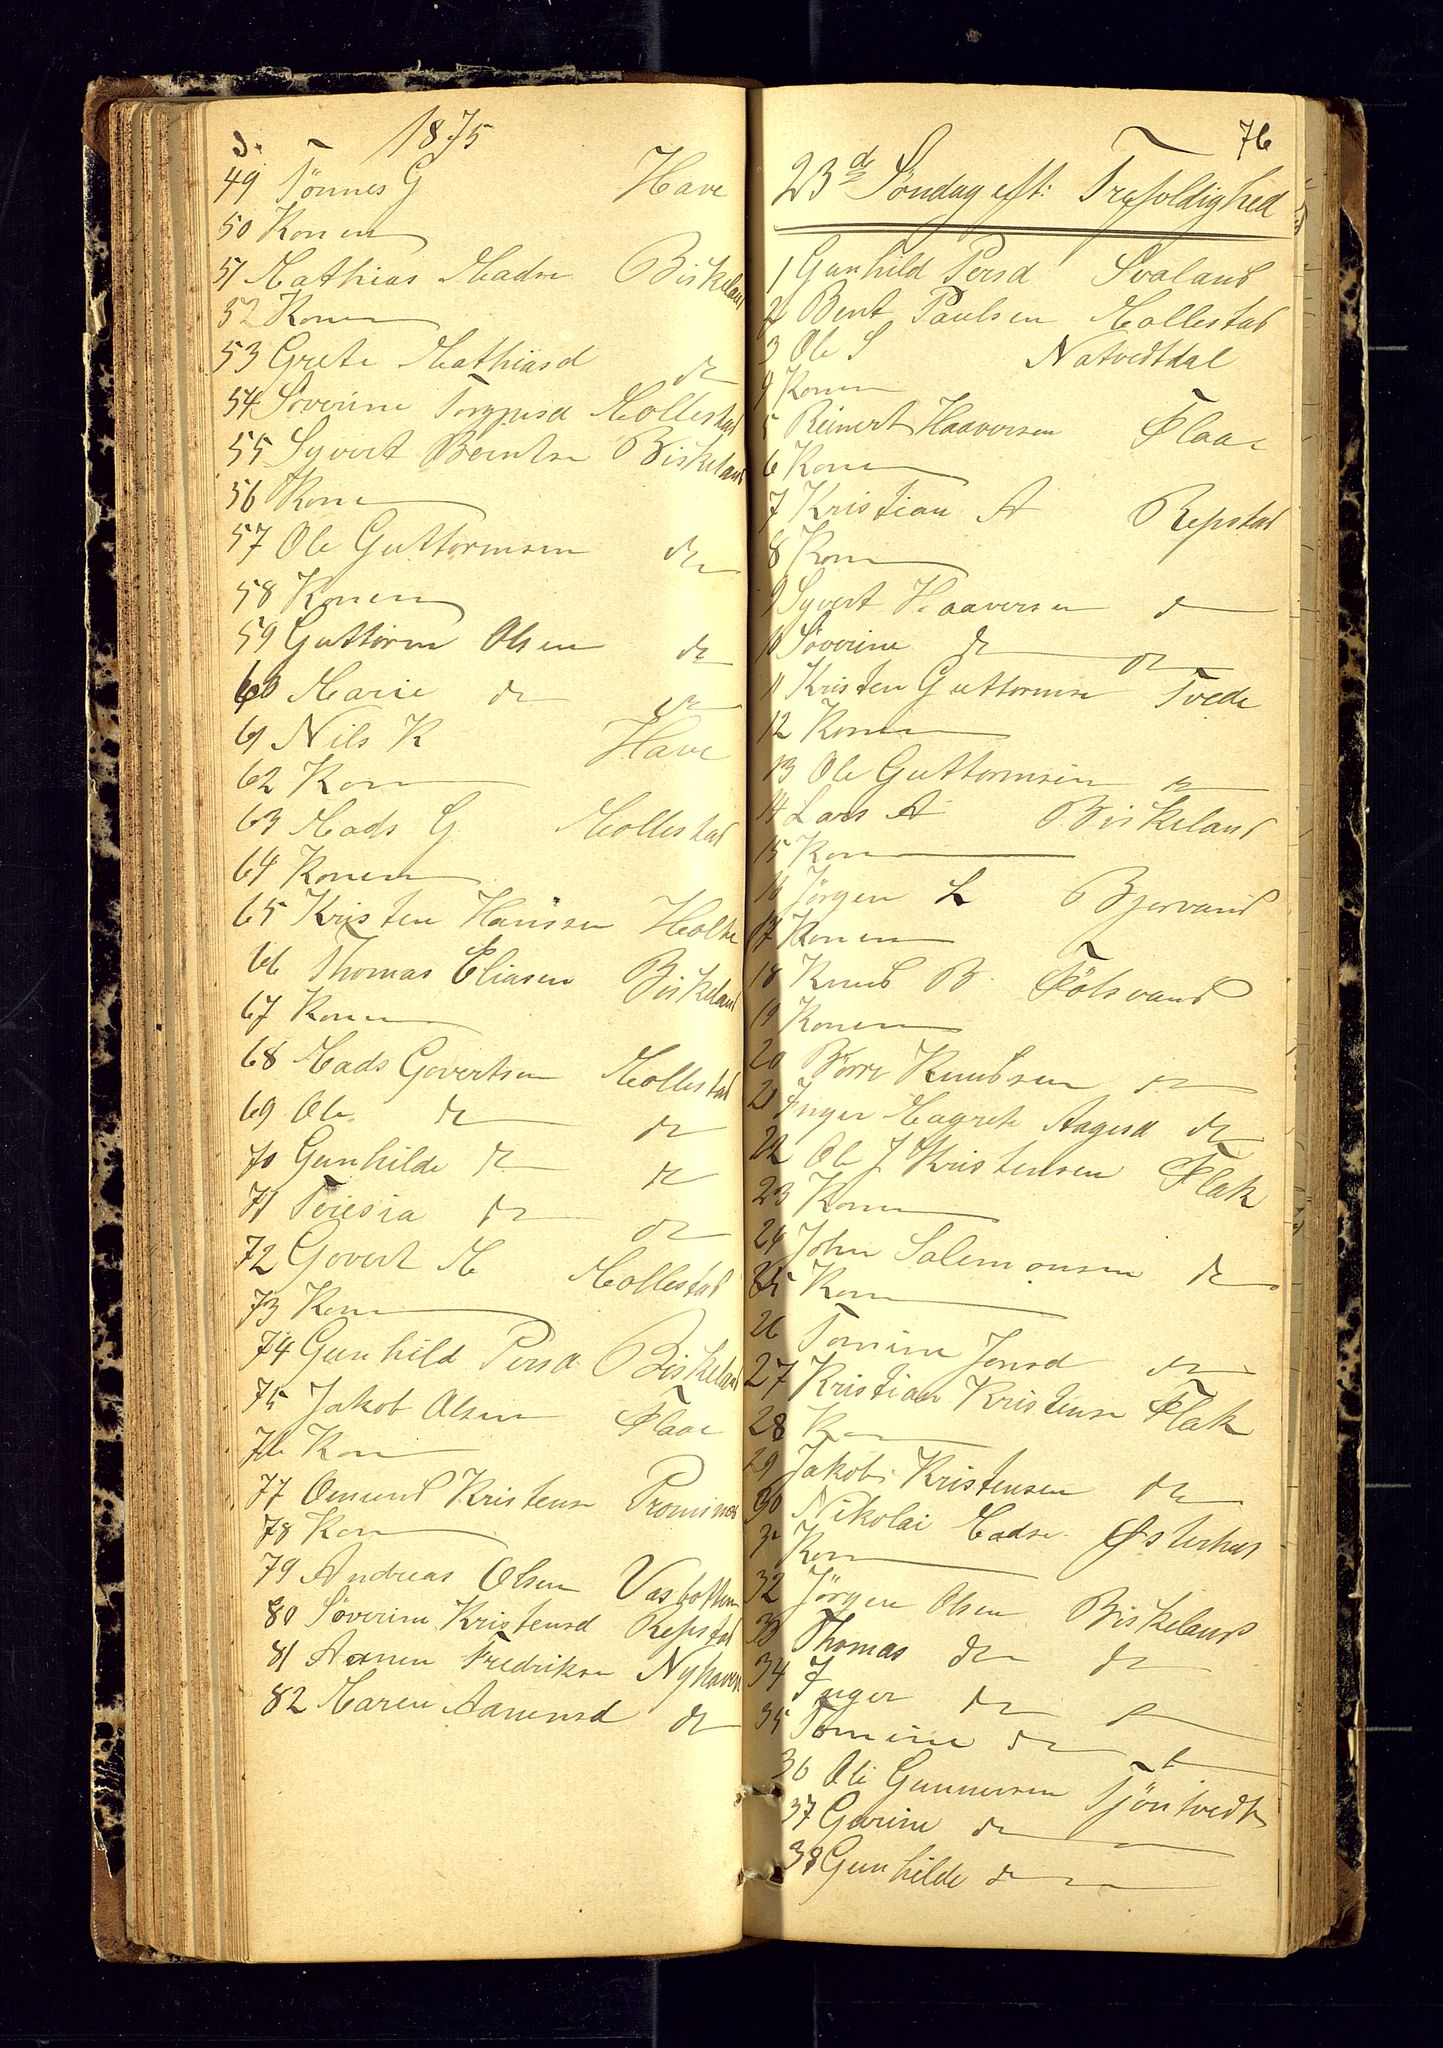 d. 1875
49 Tønnes G Have
50 Konen
51 Mathias Madse Biskeland
52 Konen
53 Grete Mathiasd do
54 Søverine Torgjusd Mollestad
55 Syvert Berntse Biskeland
56 Kone
57 Ole Guttormsen do
58 Konen
59 Guttorm Olsen do
60 Marie do do
61 Nils K Have
62 Kon
63 Mads G Mollestad
64 Konen
65 Kristen Hanssen Holte
66 Thomas Eliasen Biskeland
67 Konen
68 Mads Govertsen Mollestad
69 Ole do do
70 Gunhilde do do
71 Teresia do do
72 Govert M Mollestad
73 Kone
74 Gunhild Persd Biskeland
75 Jakob Olsen Flaae
76 Kon
77 Omund Kristense
78 Kon
79 Andreas Olsen Vasbotten
80 Søverine Kristensd Repstad
81 Aanen Fredrikse Nyhaven
82 Maren Aanensd do
76
23de Søndag eft: Trefoldighed
1 Gunhild Persd Svaland
2 Bent Paulsen Mollestad
3 Ole S Natvedtdal
4 Konen
5 Reinert Haaversen Flaae
6 Kone
7 Kristian A Repstad
8 Kon
9 Syvert Haaversen do
10 Søverine do do
11 Kristen Guttormse Tvede
12 Konen
13 Ole Guttormsen do
14 Lars A Biskeland
15 Kon
16 Jørgen L Bjorvand
17 Konen
18 Knud B. Følsvand
19 Konen
20 Børre Knudsen do
21 Inger Magrete Aagesd do
22 Ole J Kristensen Flak
23 Kone
24 John Salemonsen do
25 Kone
26 Tomine Jonsd do
27 Kristian Kristense Flak
28 Kon
29 Jakob Kristensen do
30 Nikolai Madse Østerhus
31 Kon
32 Jørgen Olsen Biskeland
33 Thomas do do
34 Inger do
35 Tomine do
36 Ole Gunnersen Tjøntvedt
37 Gurine do
38 Gunhilde do